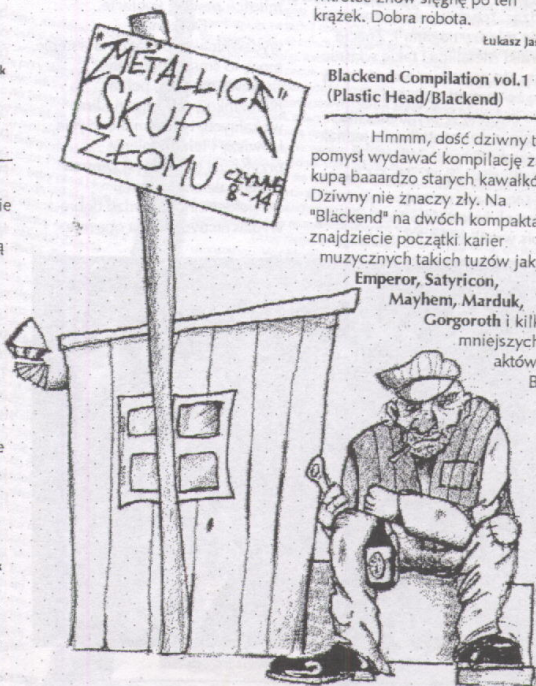 "METALLICA"
SKUP
ZŁOMU
CZYNNE
8-14
znów sięgnę po ten
krążek. Dobra robota.
Łukasz
Blackend Compilation vol.1
(Plastic Head/Blackend)
Hmmm, dość dziwny
pomysł wydawać kompilację z
kupą baaardzo starych
Dziwny nie znaczy zły. Na
"Blackend" na dwóch
znajdziecie początki karier
muzycznych takich tuzów jak
Emperor, Satyricon,
Mayhem, Marduk,
Gorgoroth i
mniejszych
aktów
B